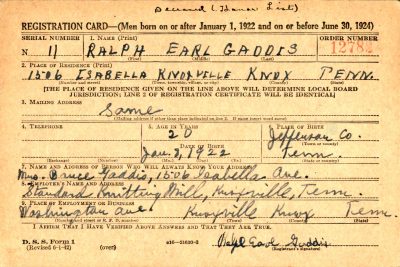 REGISTRATION CARD—(Men born on or after January 1, 1922 and on or before June 30, 1924)
SERIAL NUMBER 1. NAME (Print) ORDER NUMBER
N 11 RALPH EARL GADDIS 12782
2. PLACE OF RESIDENCE (Print)
1506 ISABELLA KNOXVILLE KNOX TENN.
(State)
[THE PLACE OF RESIDENCE GIVEN ON THE LINE ABOVE WILL DETERMINE LOCAL BOARD
JURISDICTION; LINE 2 OF REGISTRATION CERTIFICATE WILL BE IDENTICAL]
3. MAILING ADDRESS
Same
[Mailing address if other than place indicated on line 2. If same insert word same]
4. TELEPHONE 5. AGE IN YEARS 6. PLACE OF BIRTH
20 Jefferson Co.
DATE OF BIRTH (Town or county)
Jan. 8, 1922 Tenn.
(Exchange) (Number) (Mo.) (Day) (Yr.) (State or country)
7. NAME AND ADDRESS OF PERSON WHO WILL ALWAYS KNOW YOUR ADDRESS
Mrs. Bruce Gaddis, 1506 Isabella Ave.
8. EMPLOYER'S NAME AND ADDRESS
Standard Knitting Mill, Knoxville, Tenn.
9. PLACE OF EMPLOYMENT OR BUSINESS
Washington Ave Knoxville Knox Tenn.
(Street and number or R. F. D. number) (Town) (County) (State)
I AFFIRM THAT I HAVE VERIFIED ABOVE ANSWERS AND THAT THEY ARE TRUE.
D. S. S. Form 1
(Revised 6-1-42) (over) Ralph Earl Gaddis
(Registrant's signature)